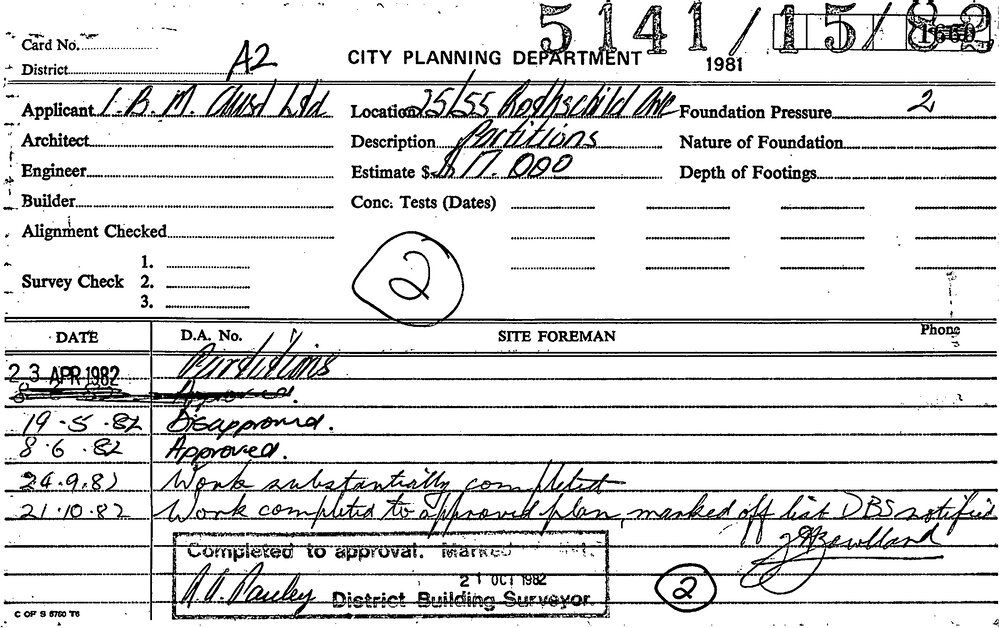 5141/15/82
Card No.
District A2
CITY PLANNING DEPARTMENT 1981
Applicant I.B.M. Aust Ltd Location 25/55 Rothschild Ave Foundation Pressure 2
Architect Description Partitions Nature of Foundation
Engineer Estimate $ $17.000 Depth of Footings
Builder Conc. Tests (Dates)
Alignment Checked
2
1.
Survey Check 2.
3.
DATE D.A. No. SITE FOREMAN Phone
23 APR 1982 Partitions
Approved.
19.5.82 Disapproved.
8.6.82 Approved.
24.9.82 Work substantially completed
21.10.82 Work completed to approved plan, marked off list DBS notified
Completed to approval. Marked
21 OCT 1982
District Building Surveyor.
2
C OF S 5760 T6